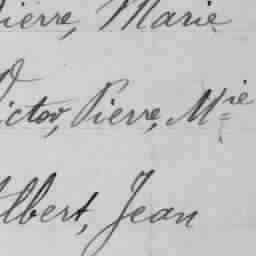 Pierre, Marie
Victor, Pierre, Mie
Albert, Jean